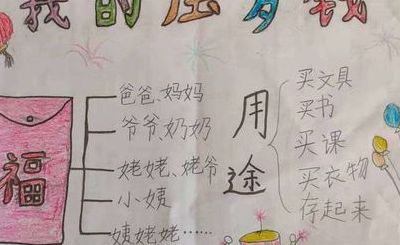 我的压岁钱
福
爸爸、妈妈
爷爷、奶奶
姥姥、姥爷
小姨
姨姥姥……
用途
买文具
买书
买课
买衣物
存起来